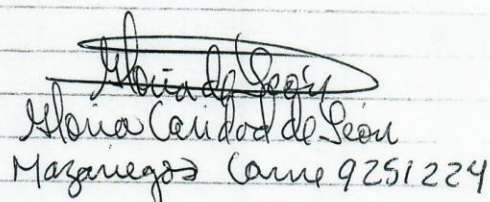 Gloria de León
Gloria Caridad de León
Mazariegos Carne 9251224